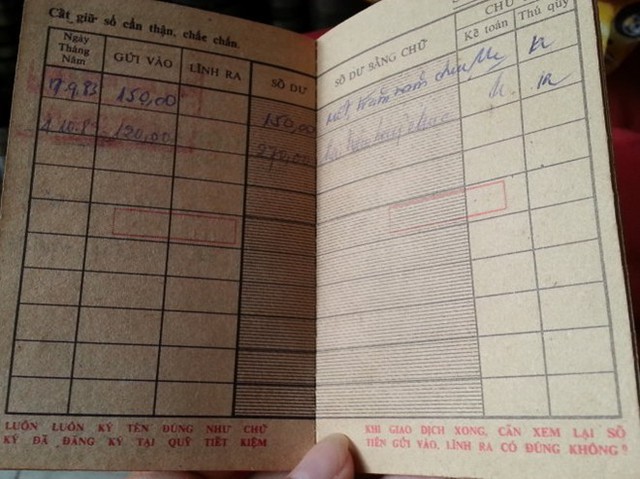 Cất giữ sổ cẩn thận, chắc chắn.
Ngày Tháng Năm
GỬI VÀO
LĨNH RA
SỐ DƯ
SỐ DƯ BẰNG CHỮ
CHỮ
Kế toán
Thủ quỹ
17.9.85 150,00 150,00 một trăm năm chục
120,00 270,00 hai trăm bảy chục
LUÔN LUÔN KÝ TÊN ĐÚNG NHƯ CHỮ
KÝ ĐÃ ĐĂNG KÝ TẠI QUỸ TIẾT KIỆM
KHI GIAO DỊCH XONG, CẦN XEM LẠI SỐ
TIỀN GỬI VÀO, LĨNH RA CÓ ĐÚNG KHÔNG?